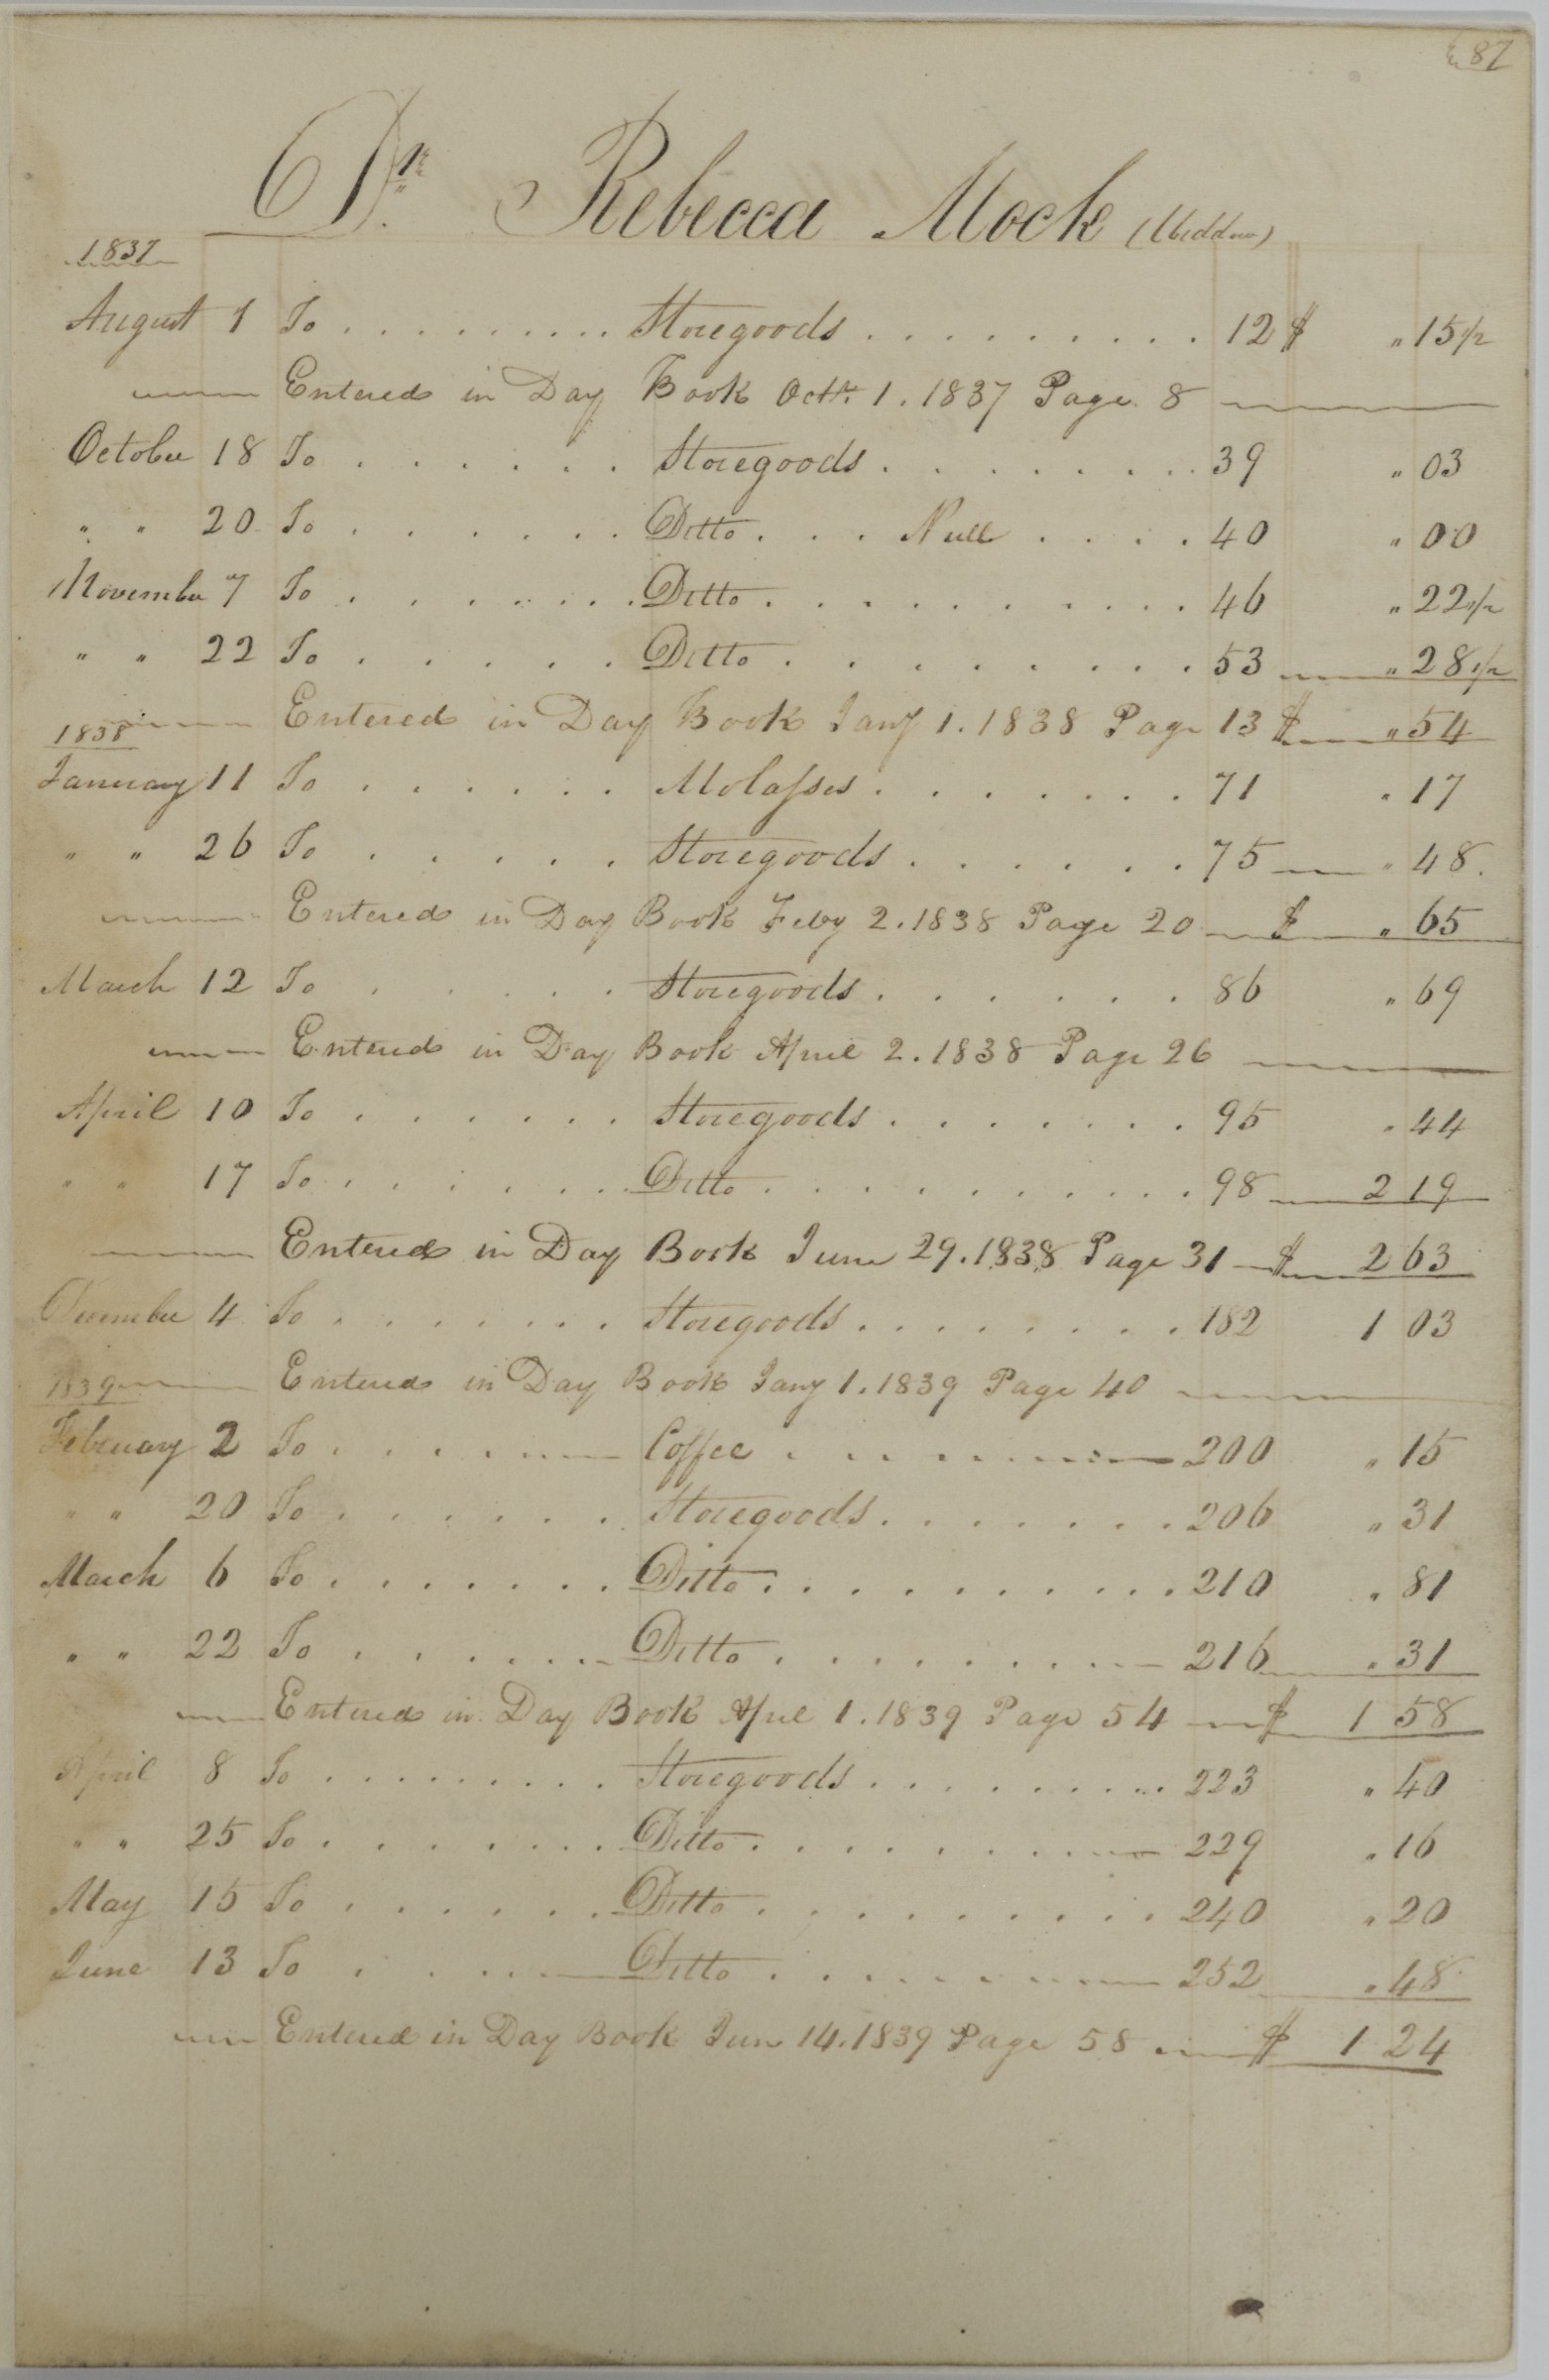 87
Dr. Rebecca Mock (Widdow)
1837
August 1 To . . . . . . . . . . Storegoods . . . . . . . . . . 12 $ " 15 1/2
Entered in Day Book Octr. 1. 1837 Page 8
October 18 To . . . . . . Storegoods . . . . . . . . 39 " 03
" " 20 To . . . . . . Ditto . . . Null . . . . 40 " 00
November 7 To . . . . . . . Ditto . . . . . . . . . . 46 " 22 1/2
" " 22 To . . . . . Ditto . . . . . . . . . 53 " 28 1/2
Entered in Day Book Jany 1. 1838 Page 13 $ " 54
1838
January 11 To . . . . . . Molasses . . . . . . . 71 " 17
" " 26 To . . . . . Storegoods . . . . . . 75 " 48.
Entered in Day Book Feby 2. 1838 Page 20 $ " 65
March 12 To . . . . . Storegoods . . . . . . 86 " 69
Entered in Day Book April 2. 1838 Page 26
April 10 To . . . . . . Storegoods . . . . . . . 95 " 44
" " 17 To . . . . . . . Ditto . . . . . . . . . . 98 2 19
Entered in Day Book June 29. 1838 Page 31 $ 2 63
December 4 To . . . . . . . Storegoods . . . . . . . . 182 1 03
Entered in Day Book Jany 1. 1839 Page 40
1839
February 2 To . . . . Coffee . . . . . . 200 " 15
" " 20 To . . . . . . Storegoods . . . . . . . 206 " 31
March 6 To . . . . . . . Ditto . . . . . . . . . . 210 " 81
" " 22 To . . . . . . Ditto . . . . . . . . . 216 " 31
Entered in Day Book Aprl 1. 1839 Page 54 $ 1 58
April 8 To . . . . . . . . . Storegoods . . . . . . . . . 223 " 40
" " 25 To . . . . . . . Ditto . . . . . . . . . 229 " 16
May 15 To . . . . . . Ditto . . . . . . . . . . 240 " 20
June 13 To . . . . Ditto . . . . . . . . 252 " 48
Entered in Day Book Jun 14. 1839 Page 58 $ 1 24